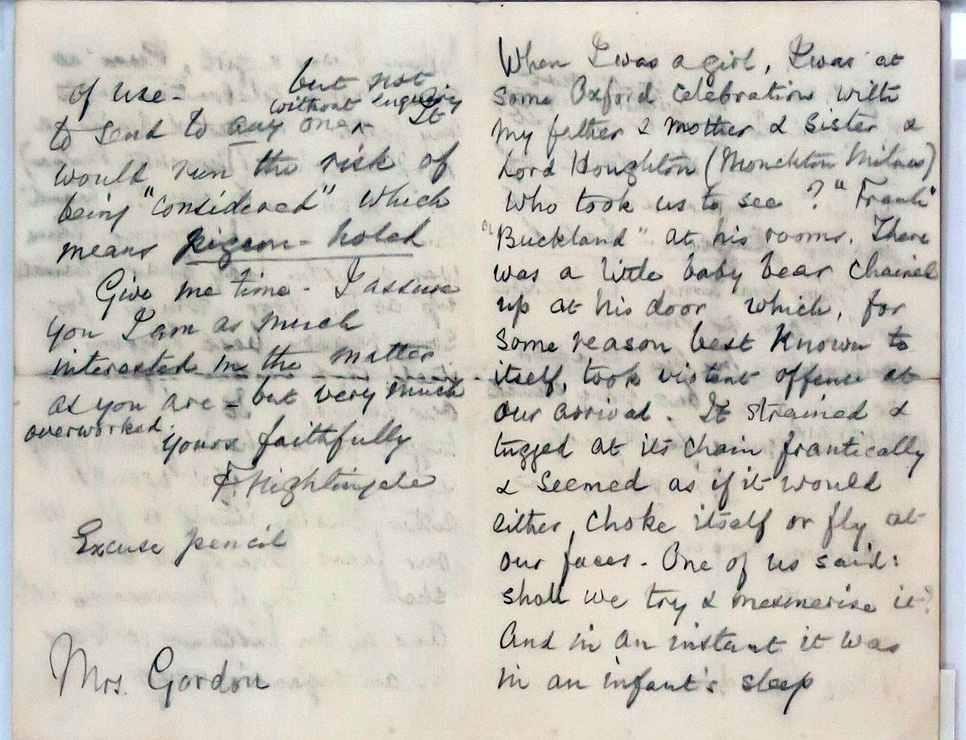 of use -
but not
without enquiry
to send to any one ^ It
would run the risk of
being "considered" which
means pigeon-holed
Give me time - I assure
you I am as much
interested in the matter
as you are - but very much
overworked.
Yours faithfully
F Nightingale
Excuse pencil
Mrs. Gordon
When I was a girl, I was at
some Oxford celebration with
my father & mother & sister &
Lord Houghton (Monckton Milnes)
who took us to see ? "Frank"
Buckland" at his rooms. There
was a little baby bear chained
up at his door which, for
some reason best known to
itself, took violent offence at
our arrival. It strained &
tugged at its chain frantically
& seemed as if it would
either choke itself or fly at
our faces. One of us said:
shall we try & mesmerise it?
And in an instant it was
in an infant's sleep